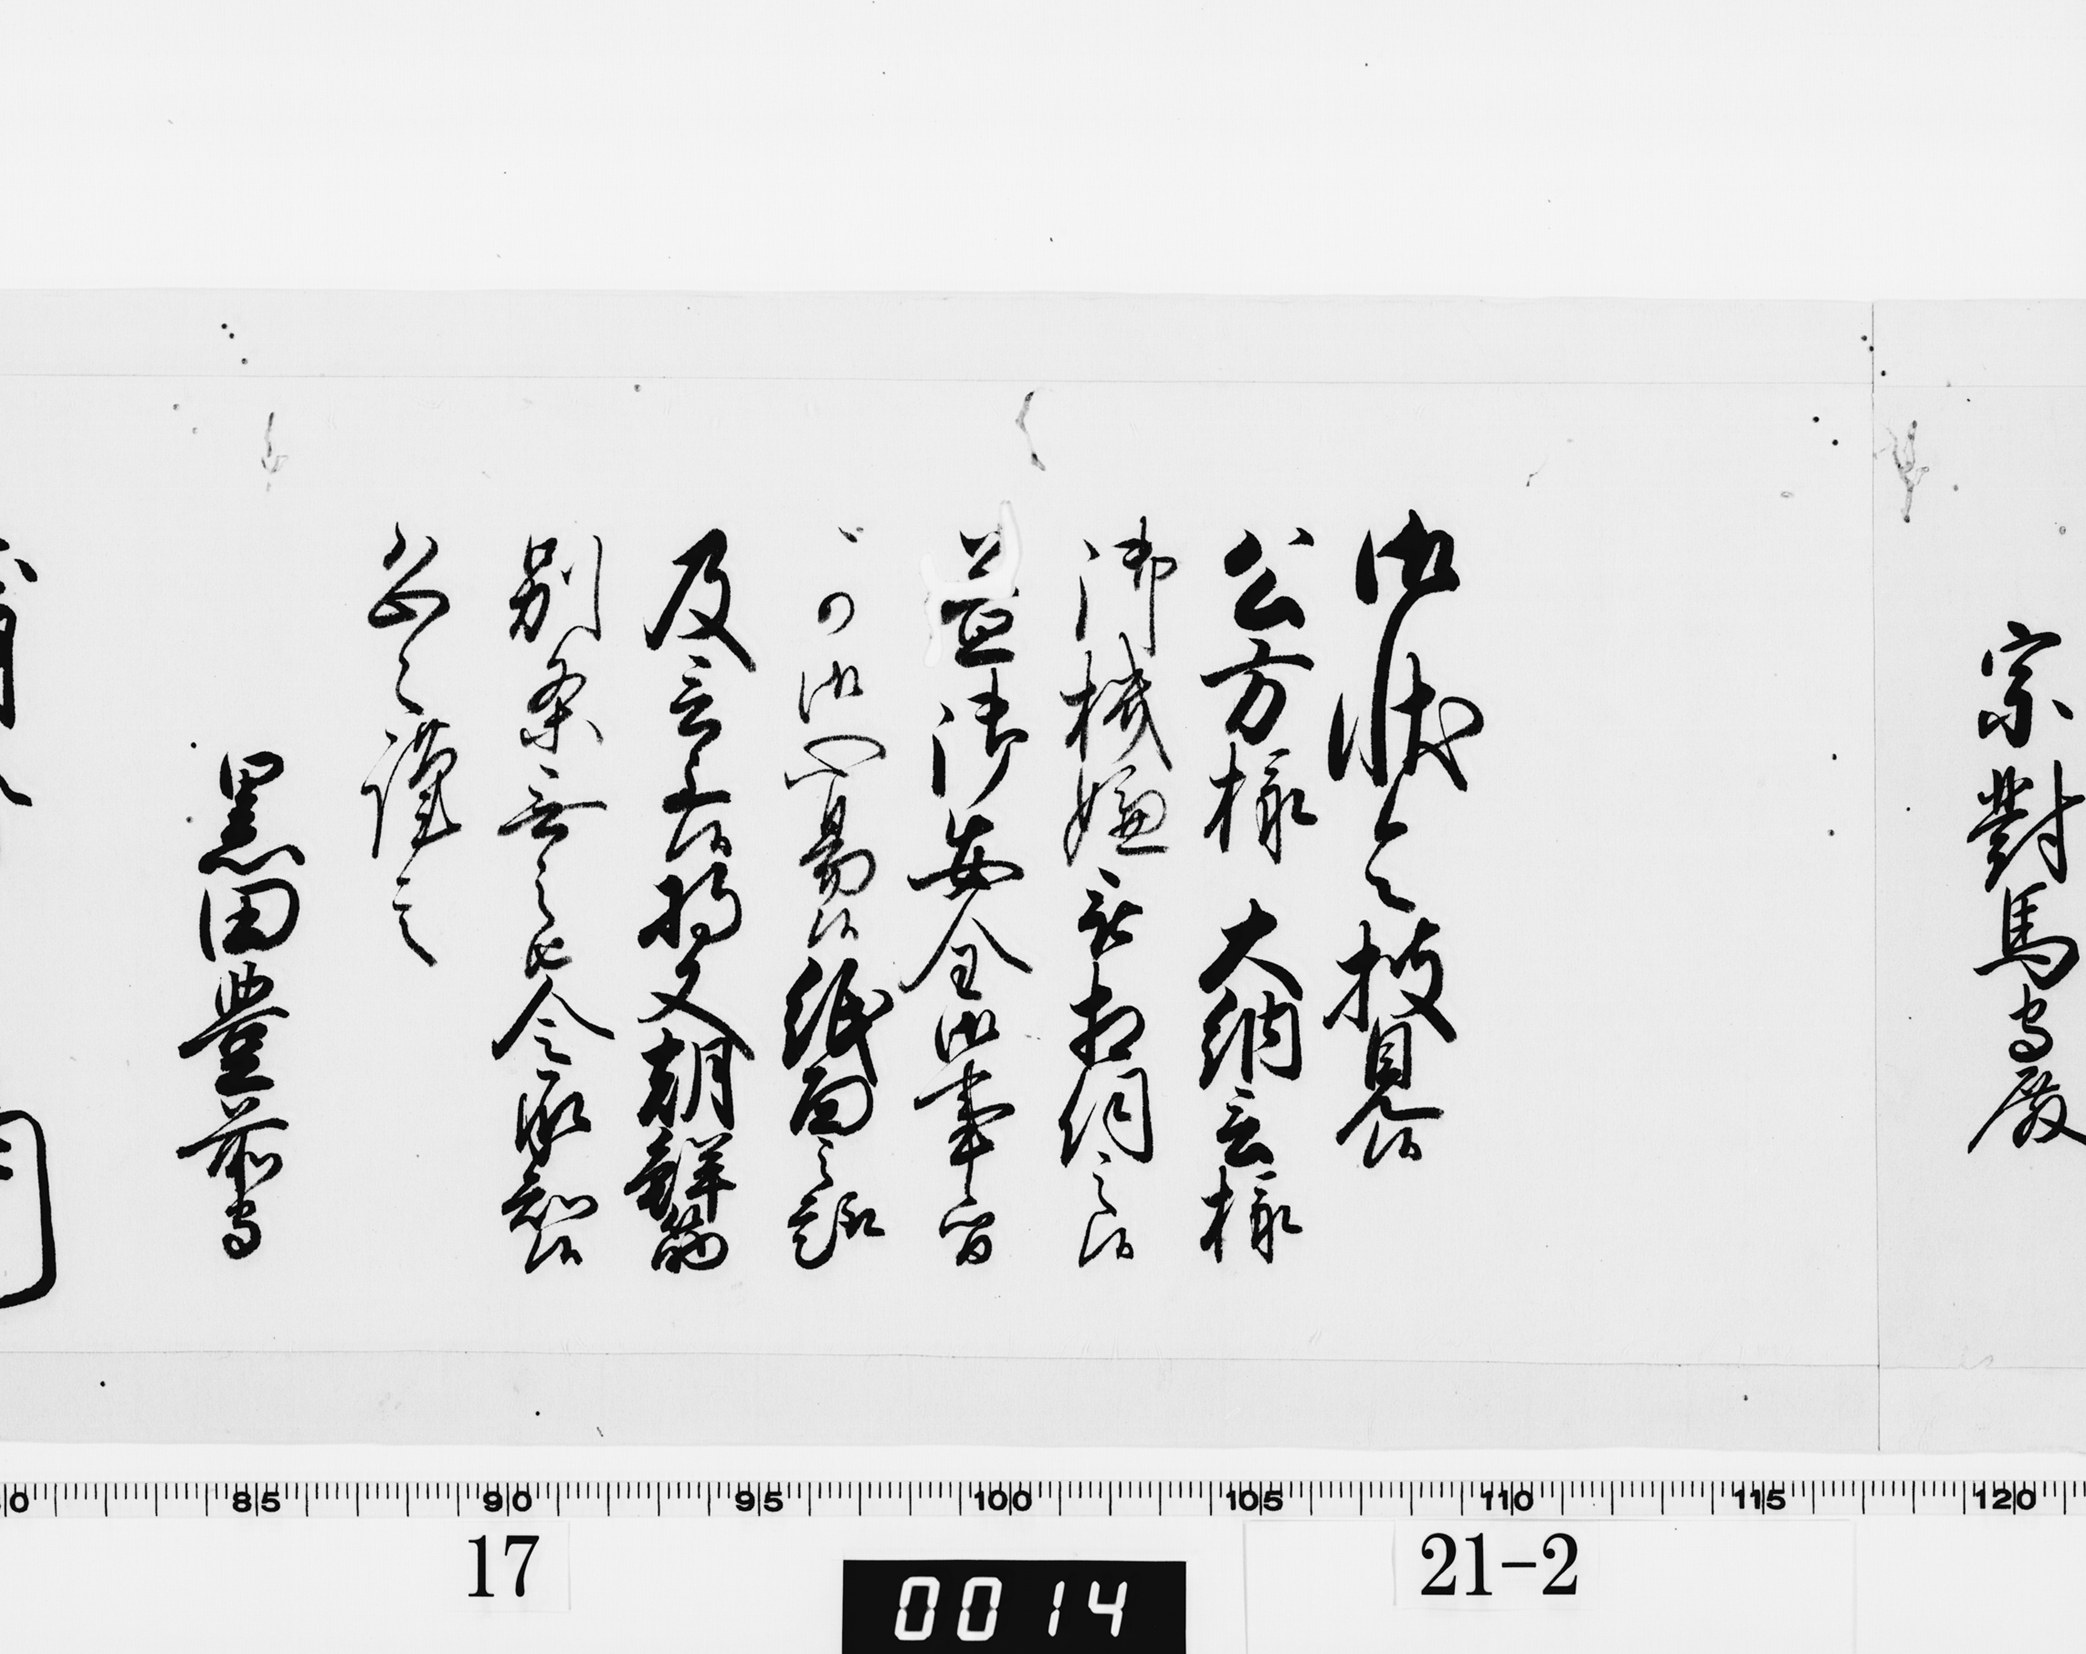 宗對馬守殿
御状令披見候
公方様 大納言様
御機嫌被相伺之候
益御安全御事候間
可御心易候紙面之趣
及言上候将又朝鮮筋
別条無之由令承知候
恐々謹言
黒田豊前守
80 85 90 95 100 105 110 115 120
17
0014
21-2